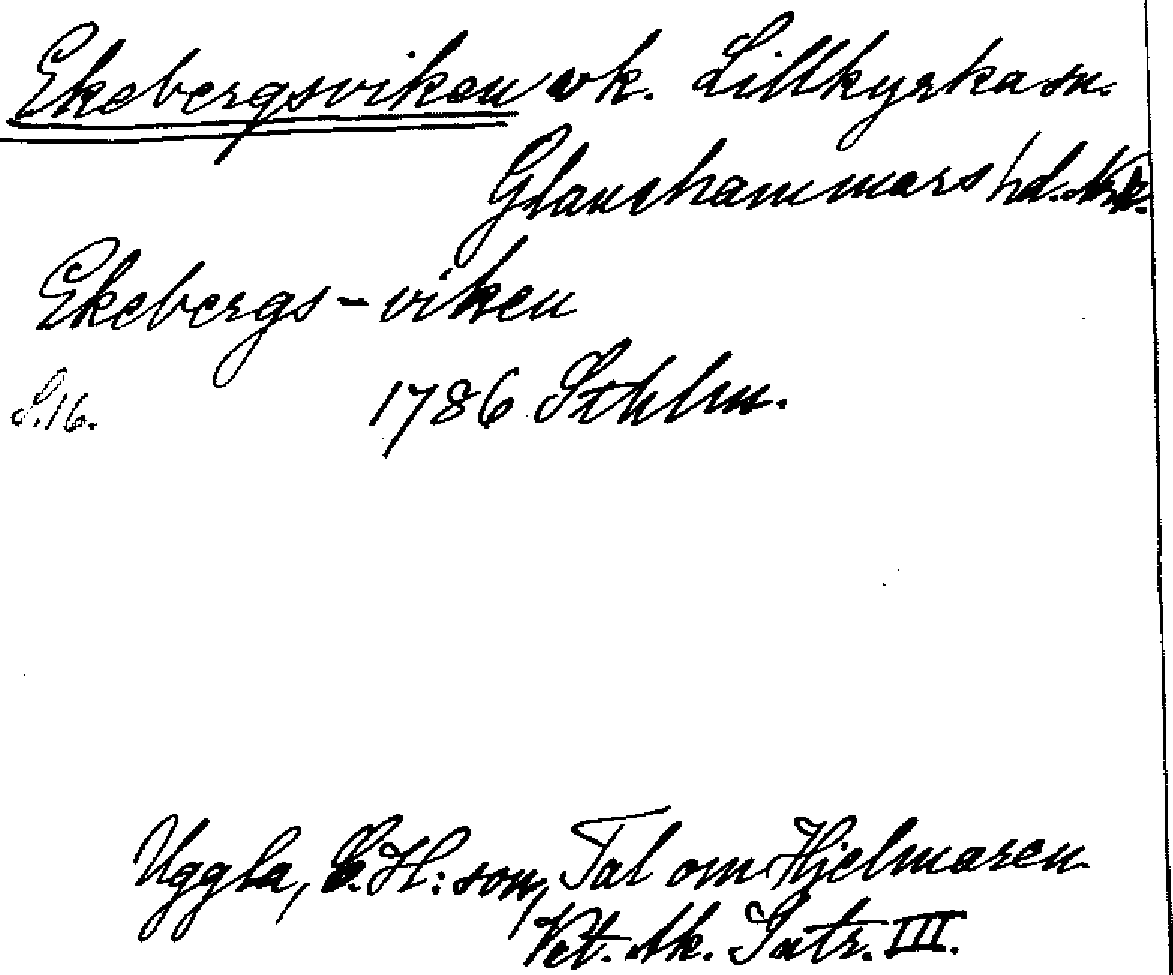 Ekebergsviken vk. Lillkyrka sn.
Glanshammars hd. Nrk.
Ekebergs-viken
S.16. 1786 Sthlm.
Uggla, C. H:son, Tal om Hjelmaren
Vet. Ak. Intr. III.